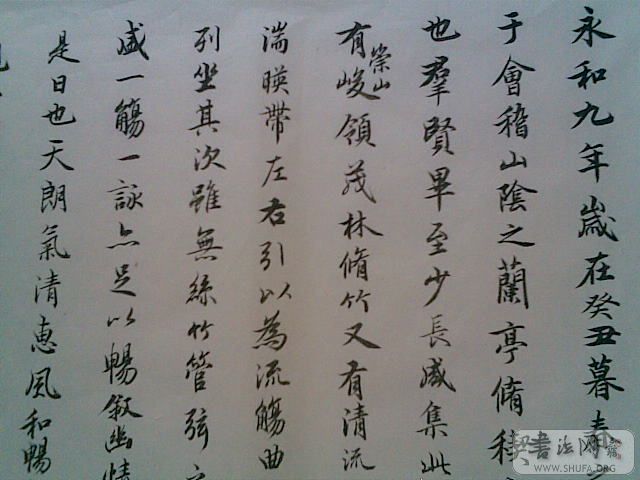 永和九年歲在癸丑暮春
于會稽山陰之蘭亭脩稧
也羣賢畢至少長咸集此
有崇山峻領茂林脩竹又有清流
湍暎帶左右引以為流觴曲
列坐其次雖無絲竹管弦
盛一觴一詠亦足以暢敘幽情
是日也天朗氣清惠風和暢
書法网
WWW.SHUFA.ORG